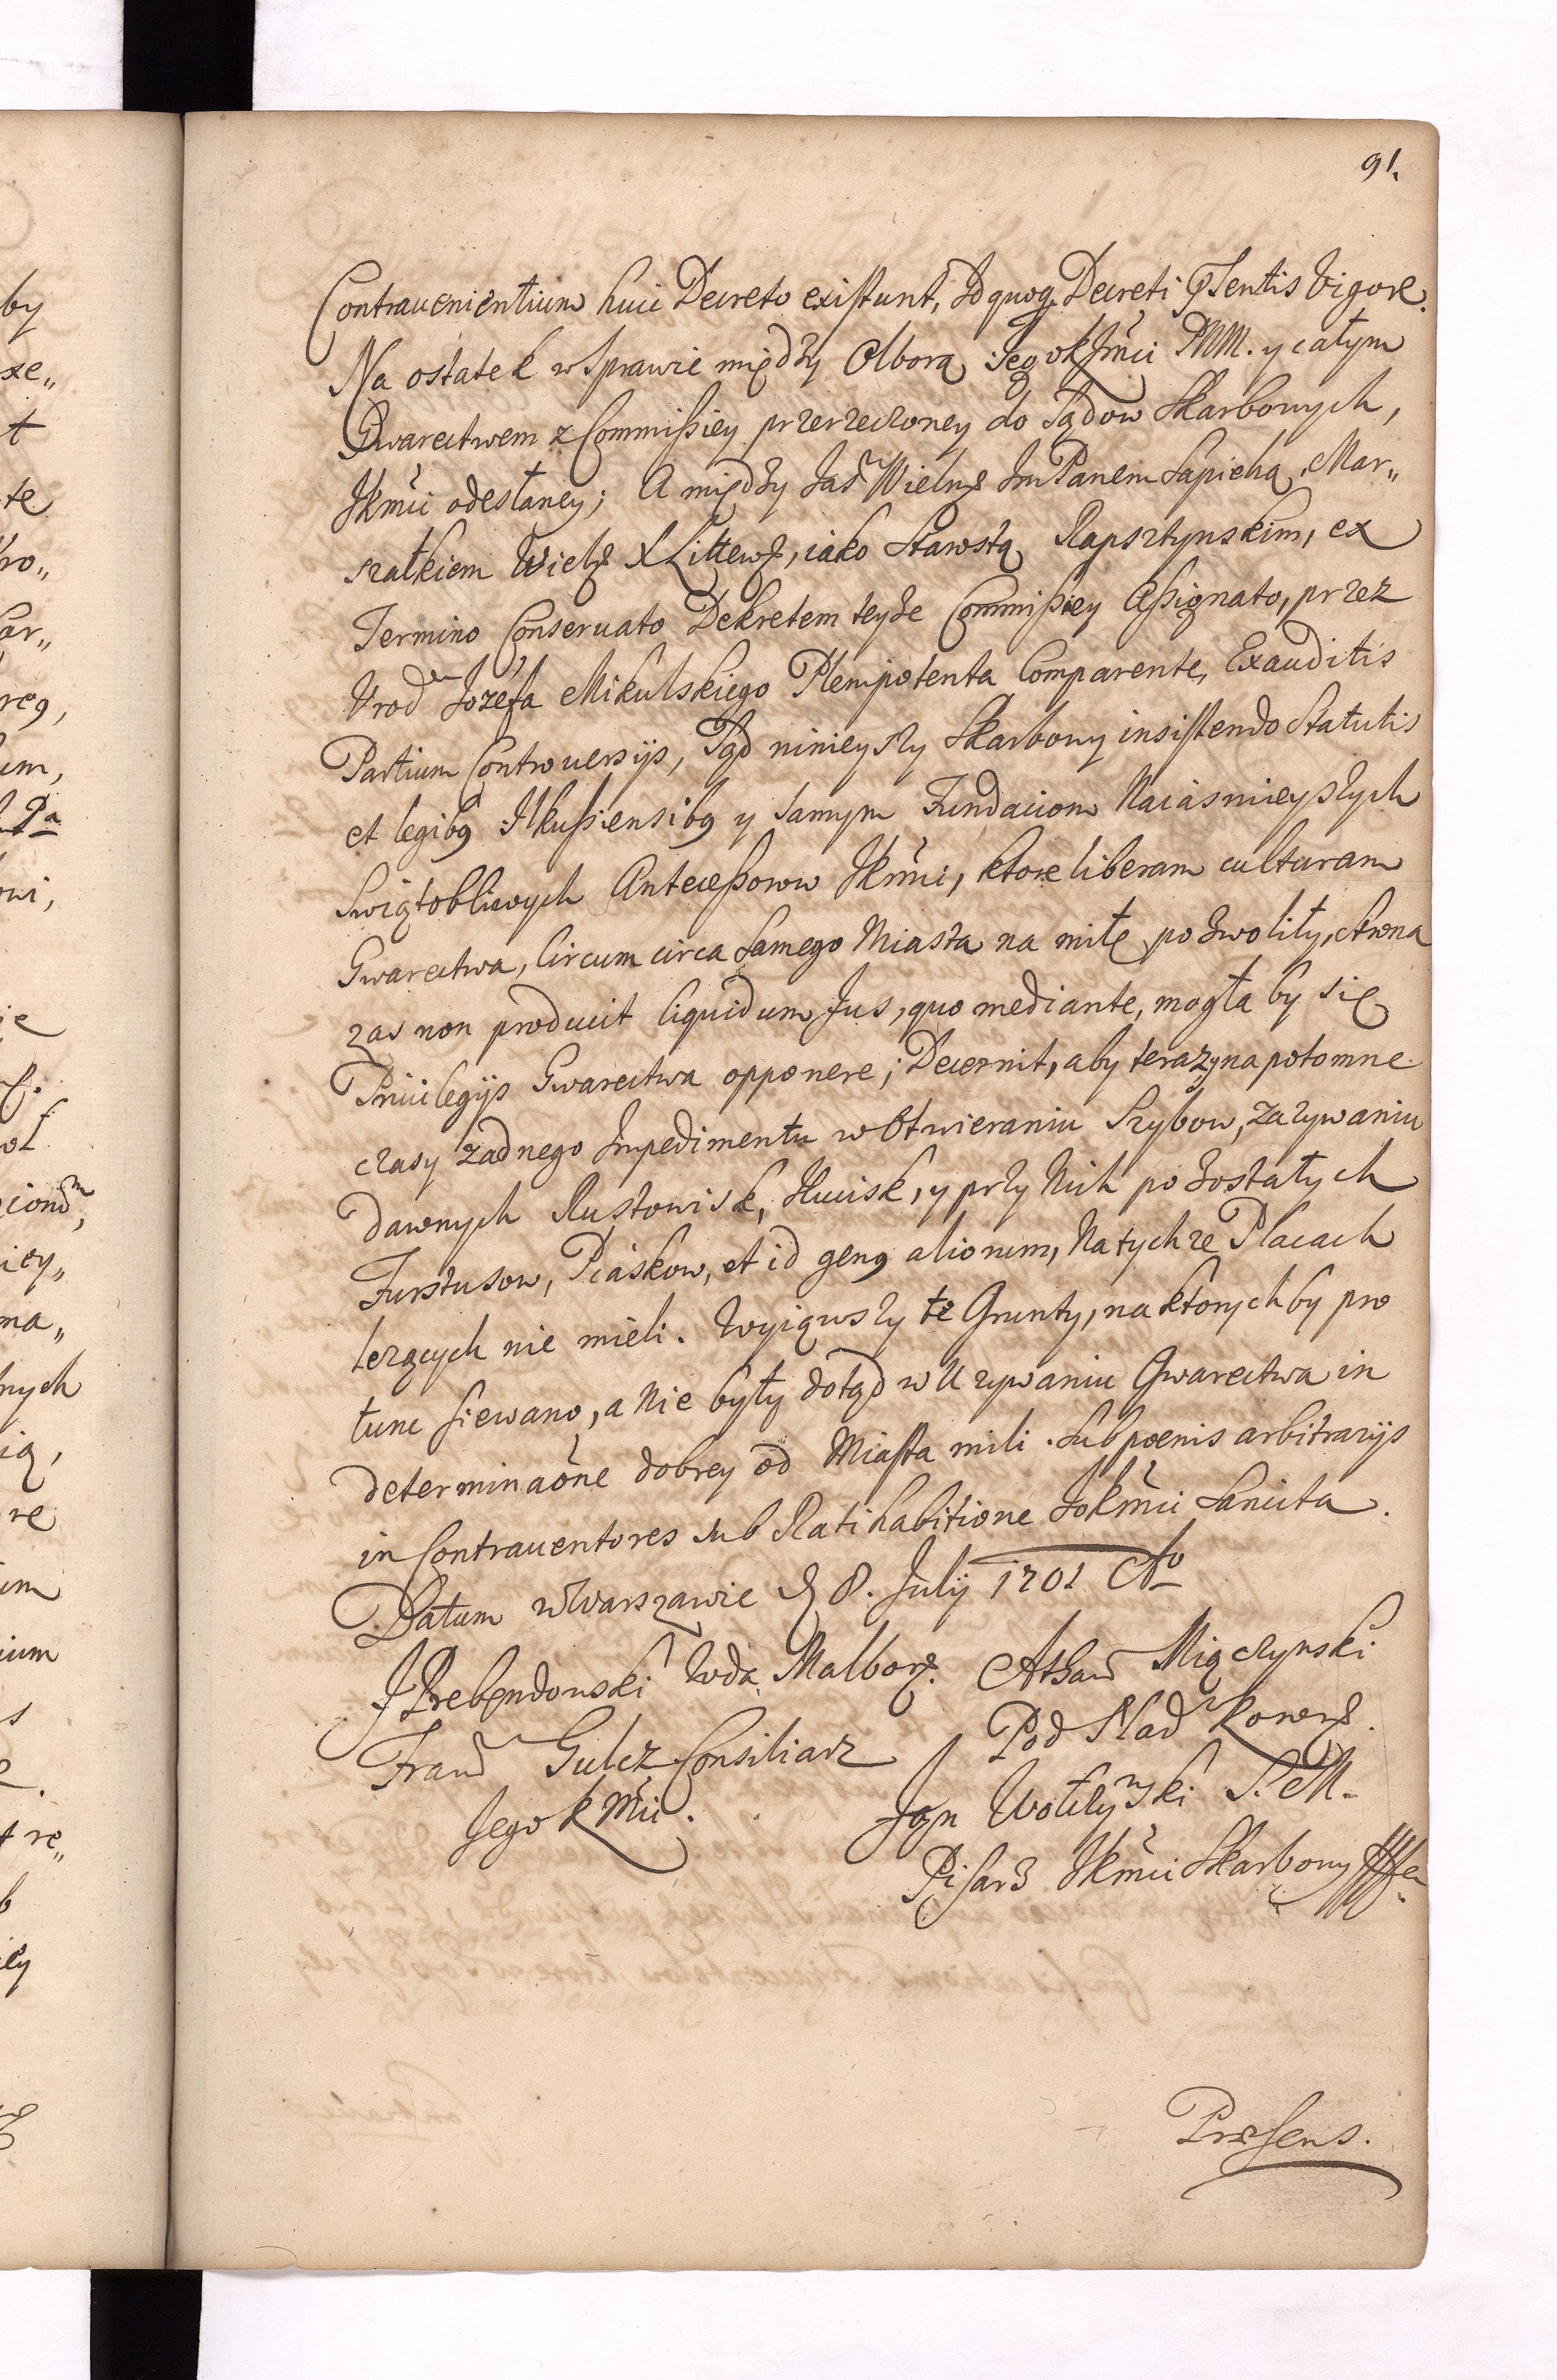 91.
Contrauenientium huic Decreto existunt, Id quoq Decreti Psentis Vigore.
Na ostatek w Sprawie między Olborą Jego KJmći PNM. y całym
Gwarectwem z Commissiey przerzeczoney do Sądow Skarbowych,
JKmći odesłaney; A między Jaś Wielm JmPanem Sapiehą, Mar„
szałkiem Wielg X Littewg, iako Starostą Rapsztynskim, ex
Termino Conseruato Dekretem teyże Commissiey Assignato, przez
Urod Jozefa Mikulskiego Plenipotenta Comparente, Exauditis
Partium Controuersijs, Sąd ninieyszy Skarbowy insistendo Statutis
et legibg Ilkussiensibg y samym Fundaciom Naiasnieyszych
Swiątobliwych Antecessorow JKmći, ktore liberam culturam
Gwarectwa, Circum circa samego Miasta na milę pozwoliły, strona
zas non producit liquidum Jus, quo mediante, mogła by się
Priuilegijs Gwarectwa opponere; Decernit, aby teraz y na potomne
czasy zadnego Impedimentu w Otwieraniu Szybow, Zazywaniu
dawnych Rustowisk, Hucisk, y przy Nich pozostałych
Fursztusow, Piaskow, et id geng aliorum, Na tychże Placach
leżących nie mieli. Wyiąwszy te Grunty, na ktorych by pro
tunc siewano, a Nie były dotąd w Uzywaniu Gwarectwa in
determinaone dobrey od Miasta mili. Sub poenis arbitrarijs
in Contrauentores sub Ratihabitione JoKmći Sancita.
Datum w Warszawie D 8. Julij 1701 Ao
J Prebendowski Wda Malborg. Athan Miączynski
Fran Gulcz Consiliarz Pod Nad Korong.
Jego K Mći. Jan Wolczynski S. M.
Pisarz JKmći Skarbowy
Præsens.